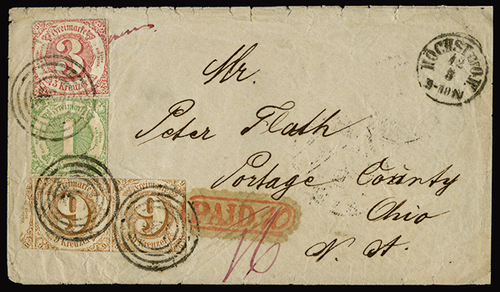 Freimarke
3
3 Kreuzer
Freimarke
1
Kreuzer
Freimarke
9
Kreuzer
9
Kreuzer
HÖCHST
12
5
Mr.
Peter Flath
Portage County
Ohio
N. A.
PAID